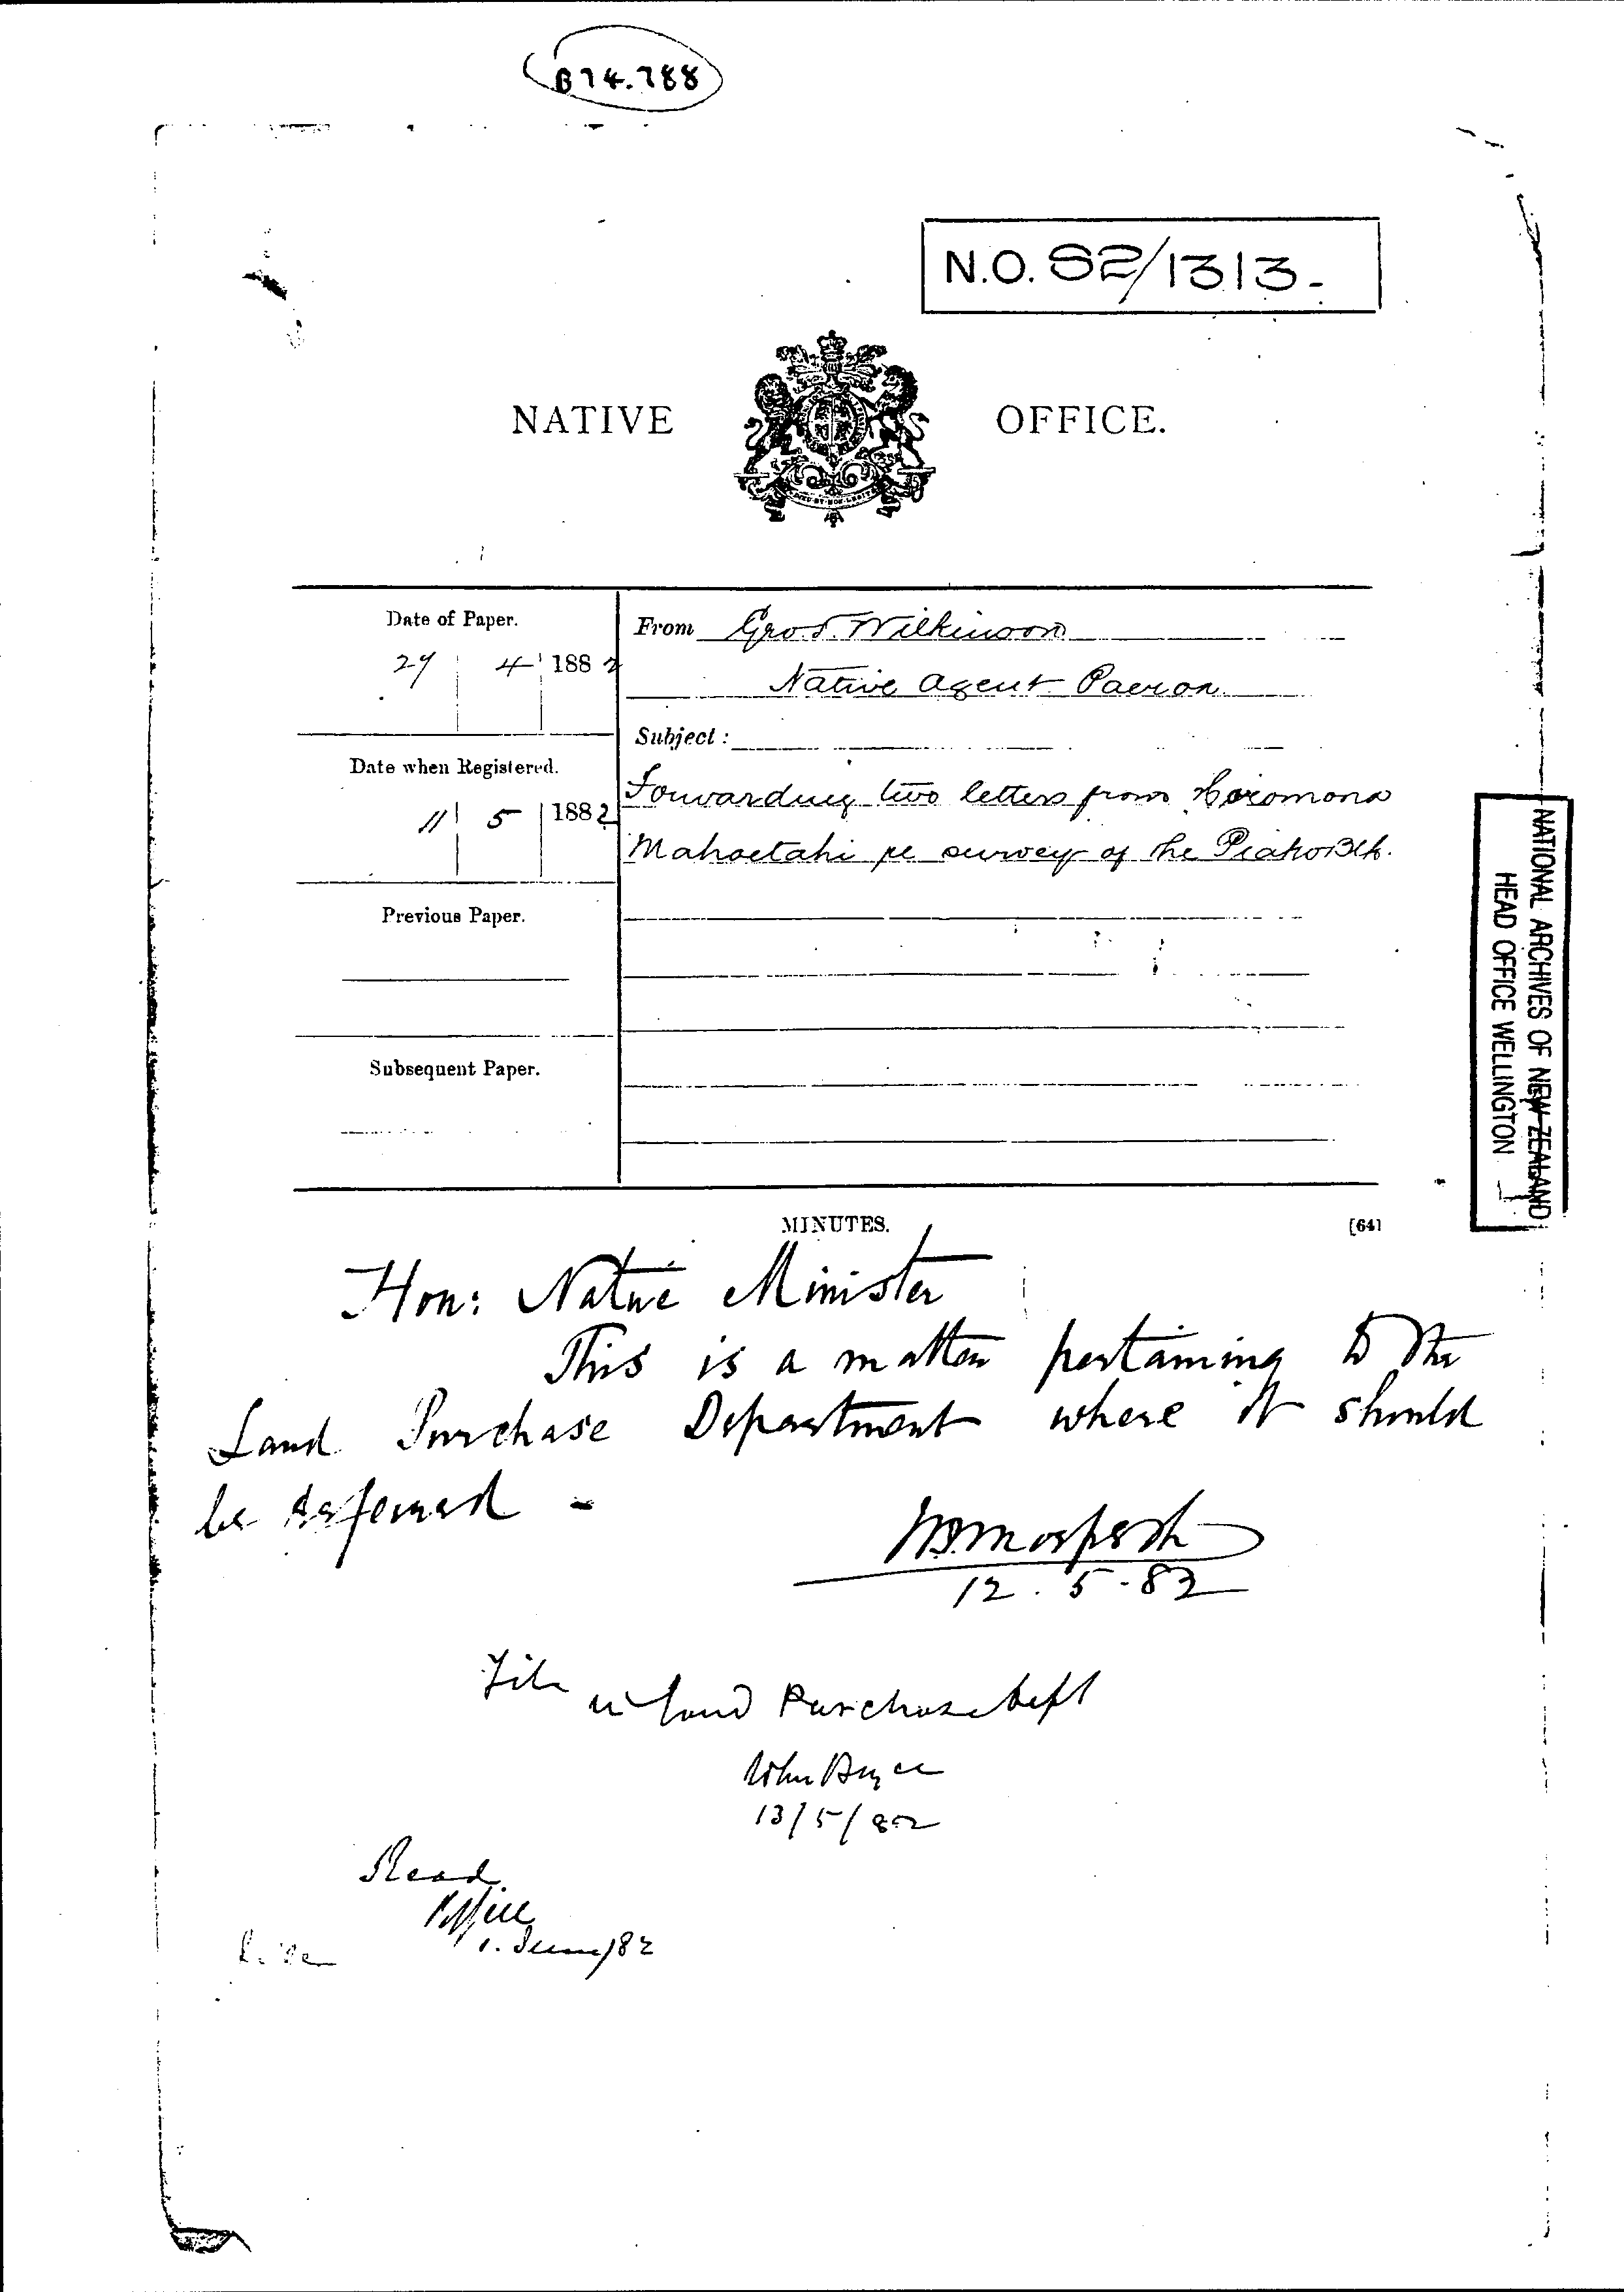 B74.788
N.O. 82/1313.-
NATIVE OFFICE.
Date of Paper.
29 4 1882
From Geo T. Wilkinson
Native Agent Paeroa
Subject:
Date when Registered.
11 5 1882
Forwarding two letters from Horomona
Mahoetahi re survey of the Piako Blk.
Previous Paper.
Subsequent Paper.
MINUTES.
[64]
Hon: Native Minister
This is a matter pertaining to the
Land Purchase Department where it should
be referred -
12.5.82
File in Land Purchase Dept
John Bryce
13/5/82
Read.
1. June/82
NATIONAL ARCHIVES OF NEW ZEALAND
HEAD OFFICE WELLINGTON